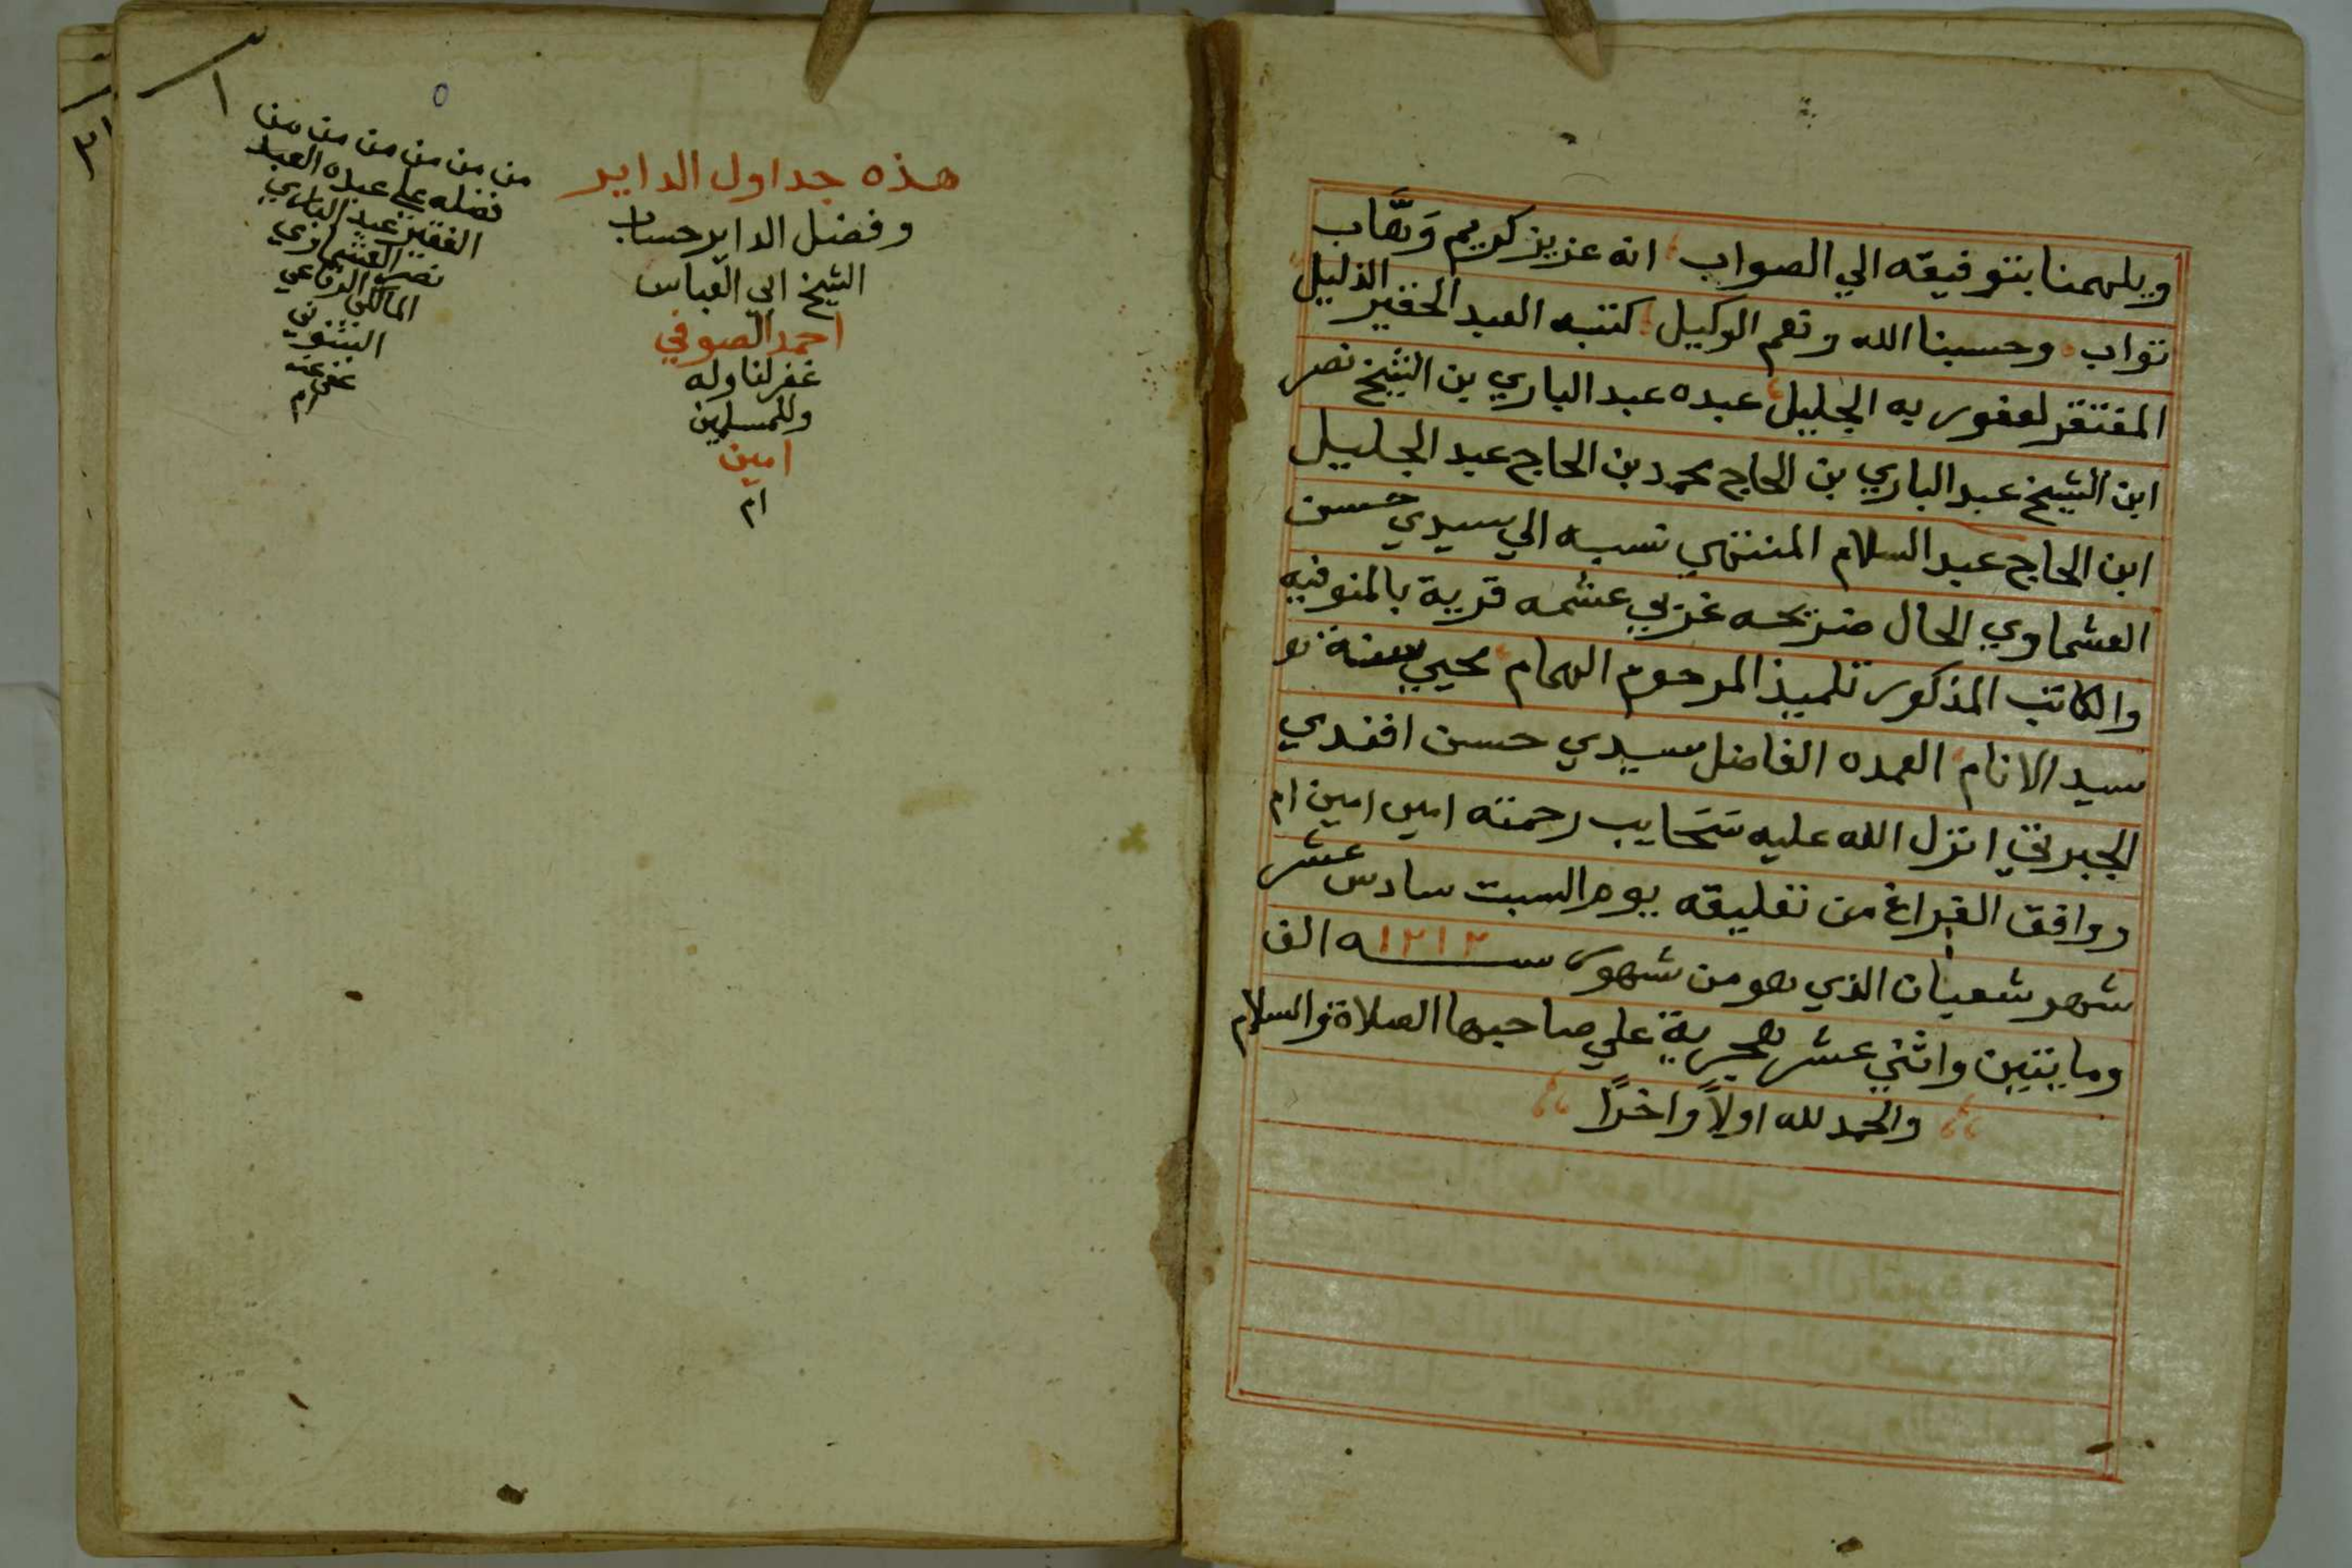 ويلهمنا بتوفيقه الي الصواب انه عزيز كريم وَهَّاب
تواب وحسبنا الله ونعم الوكيل كتبه العبد الحقير الذليل
المفتقر لعفو ربه الجليل عبده عبد الباري بن الشيخ نصر
ابن الشيخ عبد الباري بن الحاج محمد بن الحاج عبد الجليل
ابن الحاج عبد السلام المنتهي نسبه الي سيدي حسن
العشماوي الحال ضريحه غربي عشمه قرية بالمنوفيه
والكاتب المذكور تلميذ المرحوم الهمام محيي سنة
سيد الانام العمده الفاضل سيدي حسن افندي
الجبرتي انزل الله عليه سَحَايب رحمته امين امين ام
ووافق الفراغ من تعليقه يوم السبت سادس عشر
شهر شعبان الذي هو من شهور سنه ١٢١٢ الف
ومايتين واثني عشر هجرية علي صاحبها الصلاة والسلام
والحمد لله اولاً واخرًا
هذه جداول الداير
وفضل الداير حساب
الشيخ ابي العباس
احمد الصوفي
غفر لنا وله
وللمسلمين
امين
ام
١
من من من من من من من
فضله علي عبده العبد
الفقير عبد الباري
نصر العشماوي
المالكي الرفاعي
عفي عنه
ام
٣